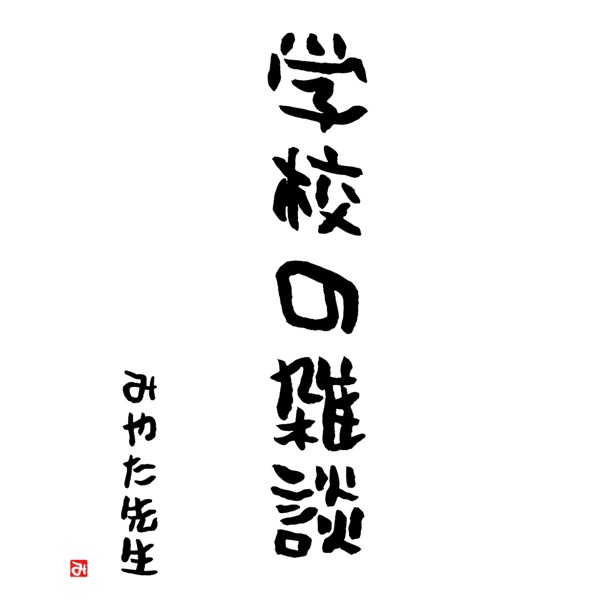 学校の雑談
みやた先生
み